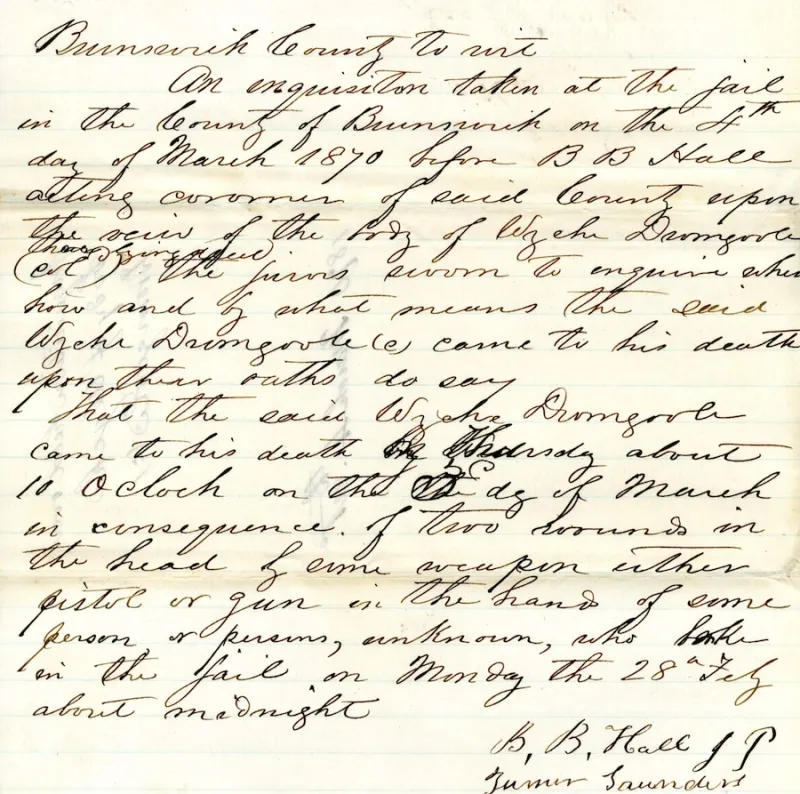 Brunswick County to wit
An inquisiton taken at the jail
in the County of Brunswick on the 4th
day of March 1870 before B B Hall
acting cororner of said County upon
the veiw of the body of Wyche Dromgoole
(col) the jurors sworn to enquire when
how and by what means the said
Wyche Dromgoole (c) came to his death
upon their oaths do say
That the said Wyche Dromgoole
came to his death Thursday about
10 O clock on the dy of March
in consequence. of two wounds in
the head by some weapon either
pistol or gun in the hands of some
person or persons, unknown, who broke
in the jail on Monday the 28 Feby
about midnight
B. B. Hall J P
Turner Saunders